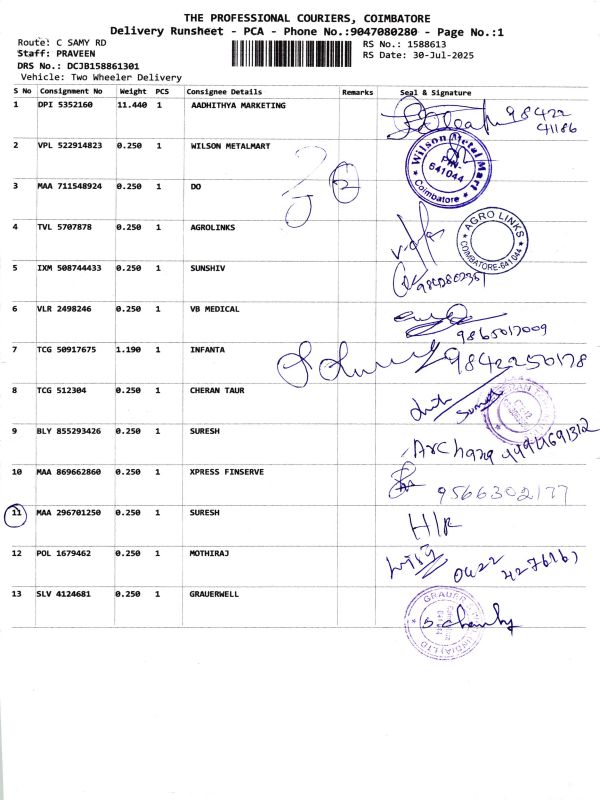 THE PROFESSIONAL COURIERS, COIMBATORE
Delivery Runsheet - PCA - Phone No.:9047080280 - Page No.:1
Route: C SAMY RD
Staff: PRAVEEN
DRS No.: DCJB158861301
Vehicle: Two Wheeler Delivery
RS No.: 1588613
RS Date: 30-Jul-2025
S No Consignment No Weight PCS Consignee Details Remarks Seal & Signature
1 DPI 5352160 11.440 1 AADHITHYA MARKETING
98422
41186
2 VPL 522914823 0.250 1 WILSON METALMART
Wilson Metal Mart
PIN-
641044
Coimbatore
3 MAA 711548924 0.250 1 DO
2
4 TVL 5707878 0.250 1 AGROLINKS
AGRO LINKS
COIMBATORE-641 044
5 IXM 508744433 0.250 1 SUNSHIV
6 VLR 2498246 0.250 1 VB MEDICAL
9865017009
7 TCG 50917675 1.190 1 INFANTA
9842250178
8 TCG 512304 0.250 1 CHERAN TAUR
9 BLY 855293426 0.250 1 SURESH
Archana
10 MAA 869662860 0.250 1 XPRESS FINSERVE
9566302177
11 MAA 296701250 0.250 1 SURESH
H/R
12 POL 1679462 0.250 1 MOTHIRAJ
0422
13 SLV 4124681 0.250 1 GRAUERWELL
GRAUER